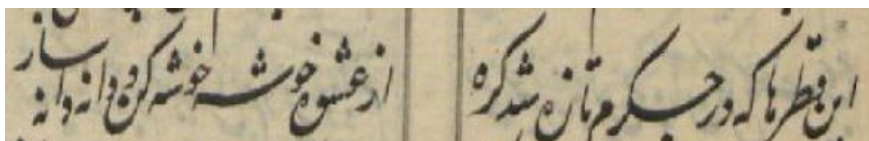 این قطرها که در جکرم تازه شد کره
از عشوه خوشه خوشه کن و دانه دانه ساز